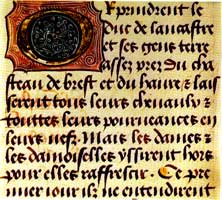 Or prindrent le
duc de lancastre
et ses gens terre
assez prez du cha
steau de brest et du haure / et lais
serent tous leurs cheuaulx et
touttes leurs pourueances en
leurs nefz. Mais les dames et
les damoiselles yssirent hors
pour elles raffreschir. Ce pre
mier iour ilz ne entendirent